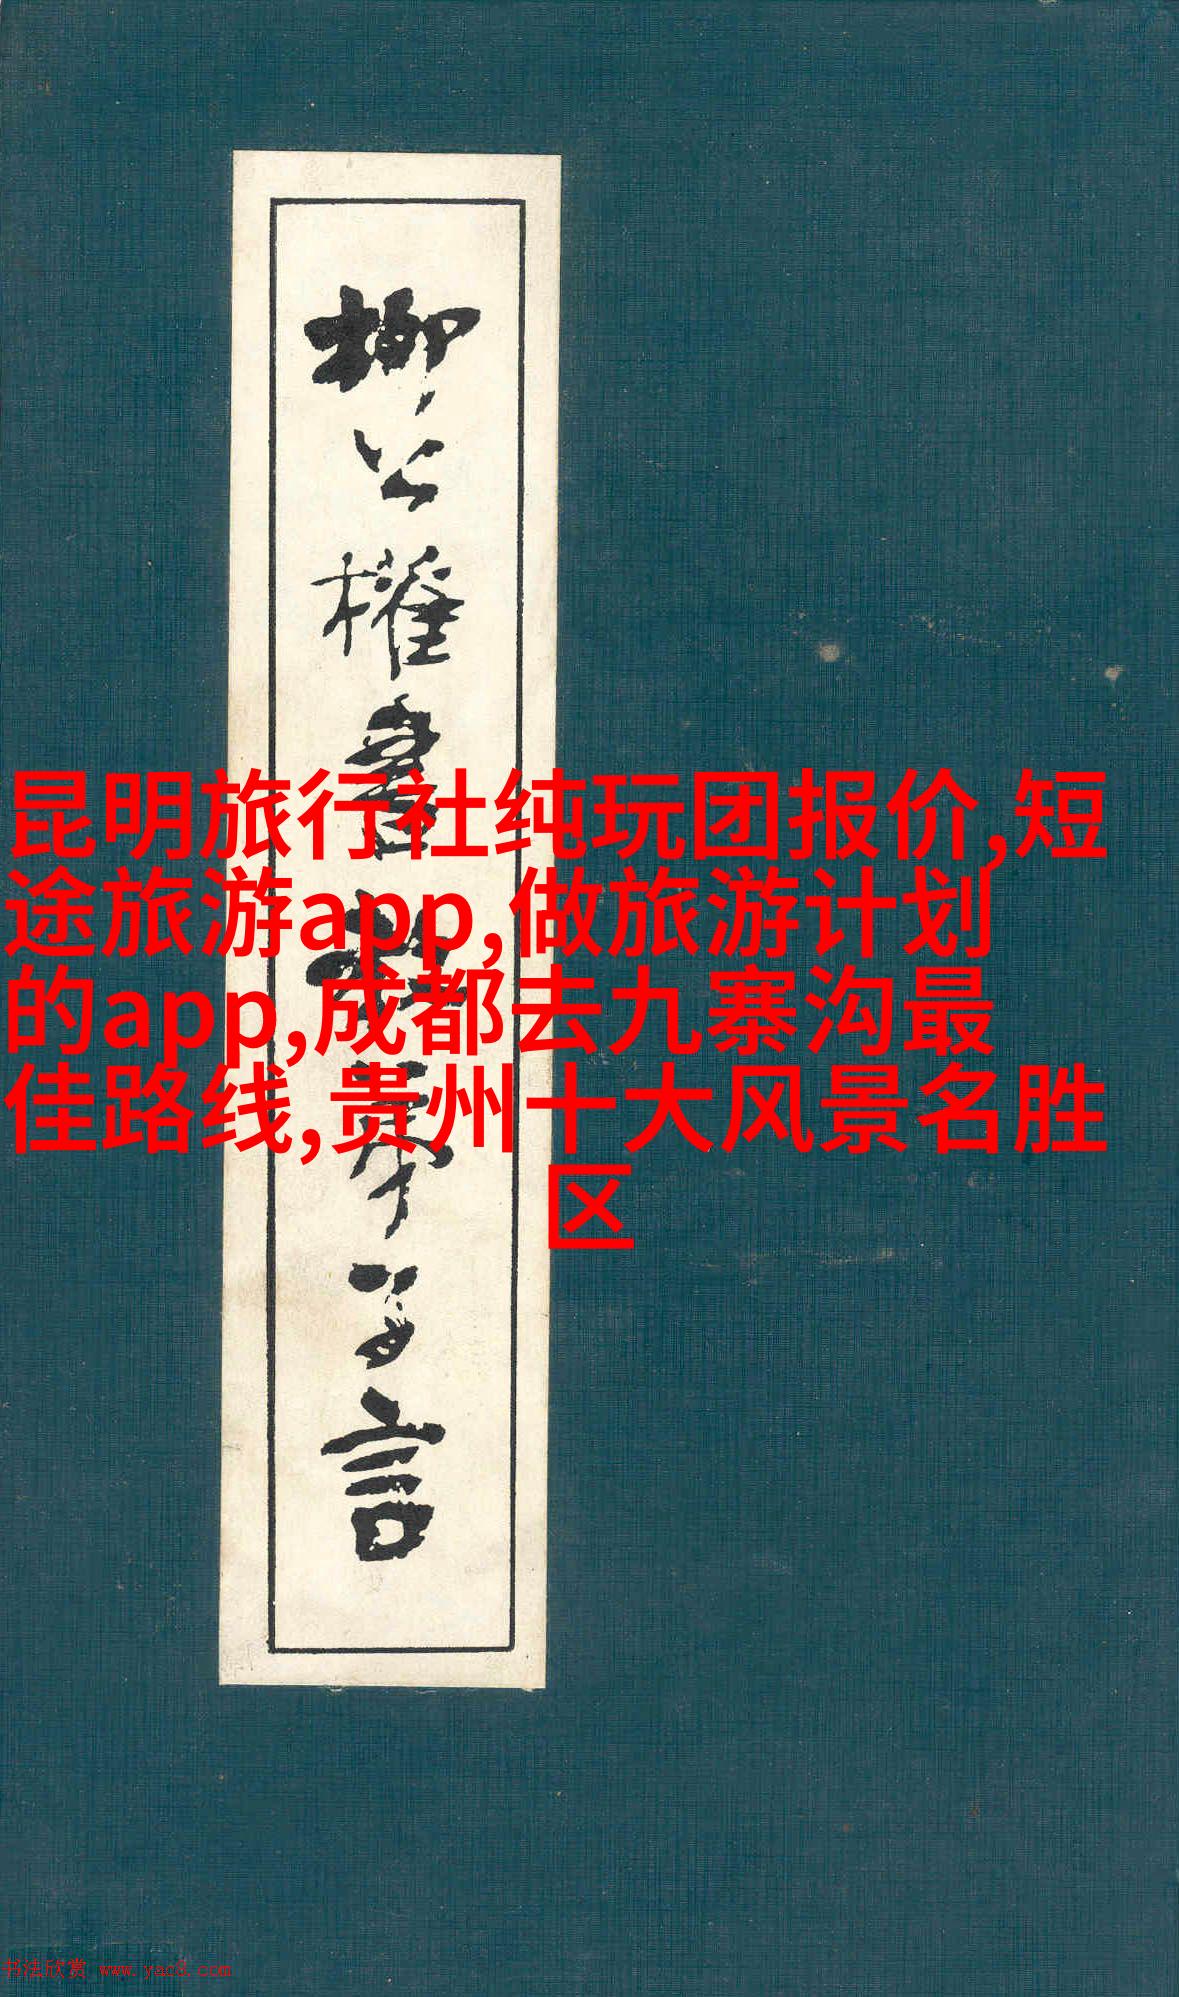 柳公權書
言
昆明旅行社纯玩团报价,短
途旅游app,做旅游计划
的app,成都去九寨沟最
佳路线,贵州十大风景名胜
区
书法欣赏 www.yac8.com